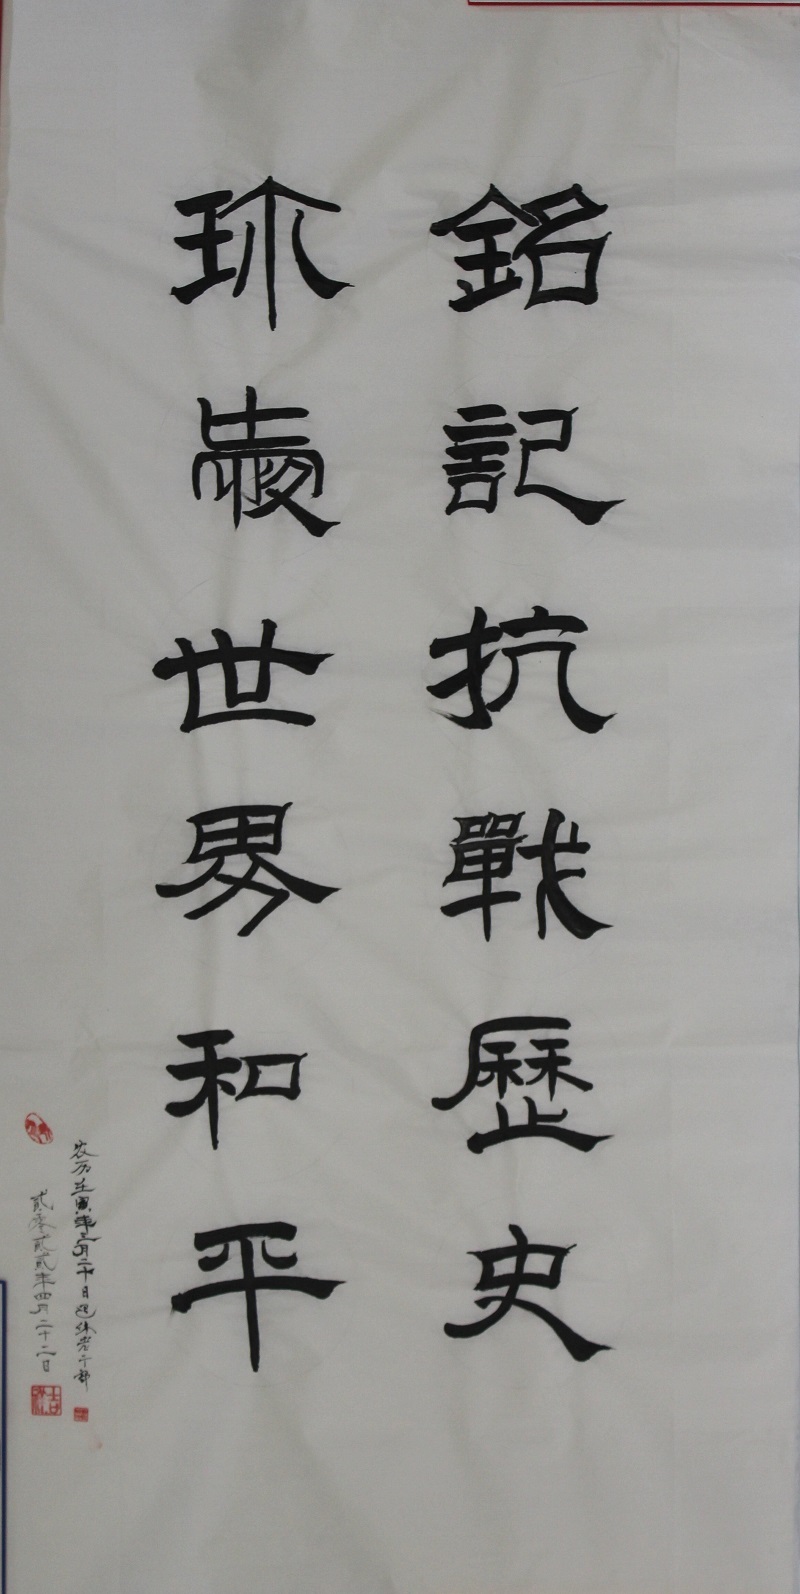 銘記抗戰歷史
珎愛世界和平
农历壬寅年三月二十日退休老干部
贰零贰贰年四月二十二日